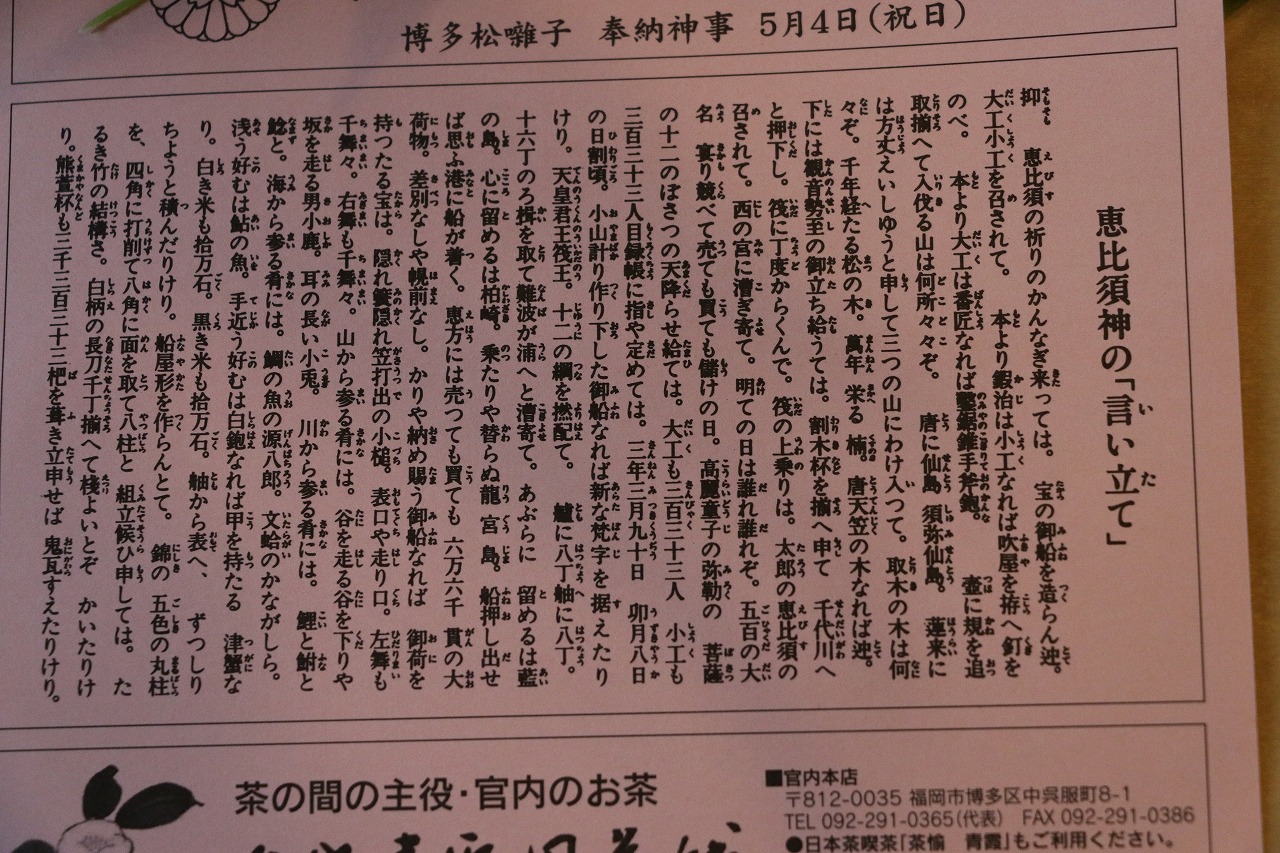 博多松囃子 奉納神事 5月4日(祝日)
恵比須神の「言い立て」
抑 恵比須の祈りのかんなぎ来っては、 宝の御船を造らん迚。
大工小工を召されて。 本より鍛治は小工なれば吹屋を拵へ釘を
のべ。 本より大工は番匠なれば鑿鋸錐手斧鉋。 壺に規を追
取揃へて入伐る山は何所々々ぞ。 唐に仙島 須弥仙島。 蓮来に
は方丈えいしゆうと申して三つの山にわけ入つて。取木の木は何
々ぞ。千年経たる松の木。萬年 栄る 楠。唐天笠の木なれば迚。
下には観音勢至の御立ち給うては。割木杯を揃へ申て 千代川へ
と押下し。筏に丁度からくんで。筏の上乗りは。太郎の恵比須の
召されて。西の宮に漕ぎ寄て。明ての日は誰れ誰れぞ。五百の大
名 宴り競べて売ても買ても儲けの日。高麗童子の弥勒の 菩薩
の十二のぼさつの天降らせ給ては。大工も三百三十三人 小工も
三百三十三人目録帳に指や定めては。三年三月九十日 卯月八日
の日割頃。小山計り作り下した御船なれば新な梵字を据えたり
けり。天皇君王筏王。十二の綱を撚配て。 艫に八丁舳に八丁。
十六丁のろ揖を取て難波が浦へと漕寄て。あぶらに 留めるは藍
の島。心に留めるは柏崎。乗たりや替らぬ龍 宮島。船押し出せ
ば思ふ港に船が着く。恵方には売つても買ても 六万六千 貫の大
荷物。差別なしや幌前なし。かりや納め賜う御船なれば 御荷を
持つたる宝は。隠れ簑隠れ笠打出の小槌。表口や走り口。左舞も
千舞々。右舞も千舞々。山から参る肴には。谷を走る谷を下りや
坂を走る男小鹿。耳の長い小兎。 川から参る肴には。 鯉と鮒と
鯰と。海から参る肴には。鯛の魚の源八郎。文蛤のかながしら。
浅う好むは鮎の魚。手近う好むは白鮑なれば甲を持たる 津蟹な
り。白き米も拾万石。黒き米も拾万石。舳から表へ、 ずつしり
ちようと積んだりけり。船屋形を作らんとて。 錦の 五色の丸柱
を、四角に打削て八角に面を取て八柱と 組立候ひ申しては。 た
るき竹の結構さ。白柄の長刀千丁揃へて棧よいとぞ かいたりけ
り。熊萱杯も三千三百三十三杷を葺き立申せば 鬼瓦すえたりけり。
茶の間の主役・官内のお茶
■官内本店
〒812-0035 福岡市博多区中呉服町8-1
TEL 092-291-0365(代表) FAX 092-291-0386
●日本茶喫茶「茶愉 青霞」もご利用ください。